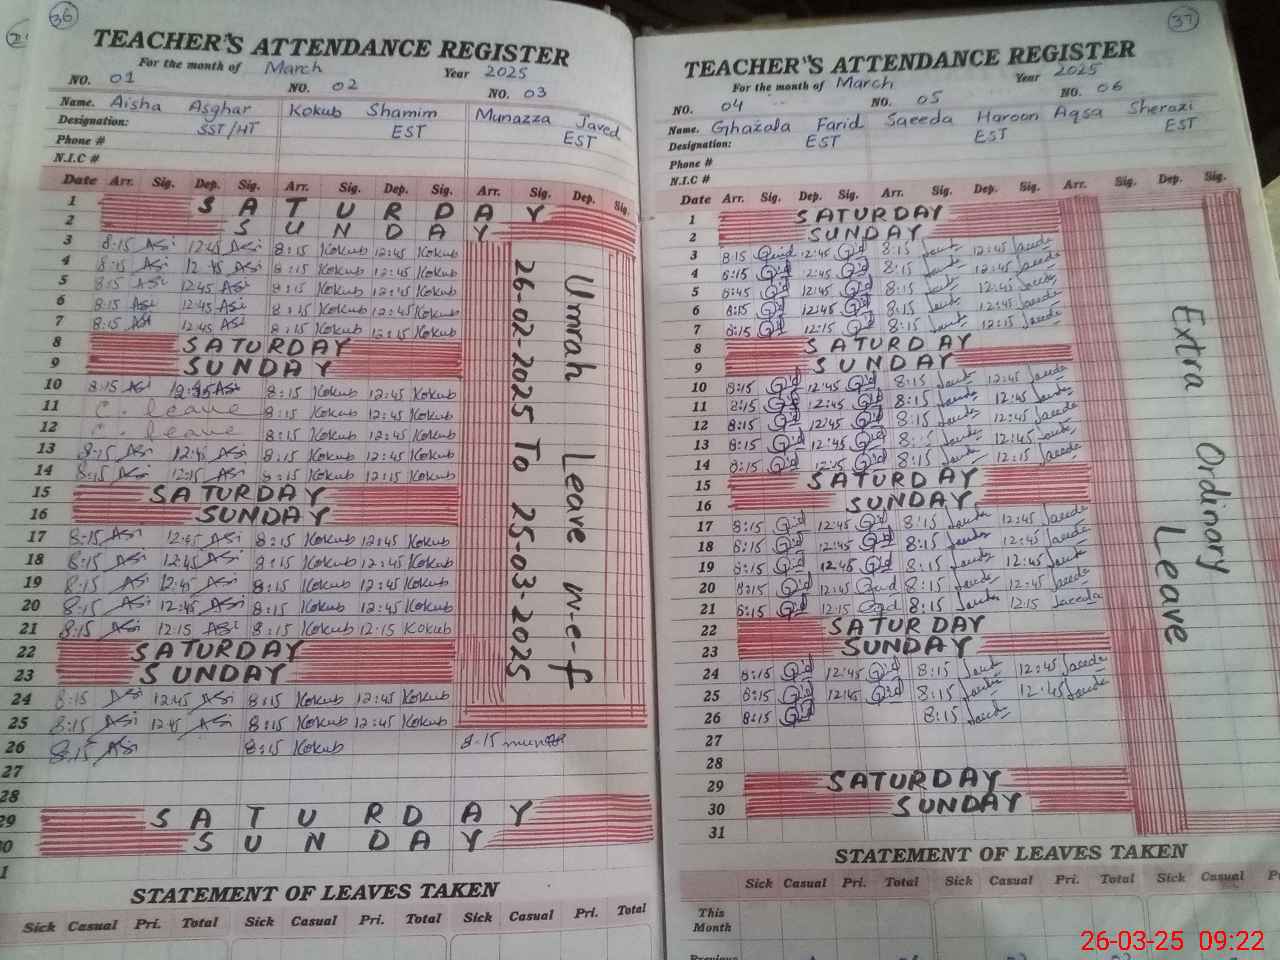 36
TEACHER'S ATTENDANCE REGISTER
For the month of March Year 2025
NO. 01 NO. 02 NO. 03
Name. Aisha Asghar Kokub Shamim Munazza Javed
Designation: SST/HT EST EST
Phone #
N.I.C #
Date Arr. Sig. Dep. Sig. Arr. Sig. Dep. Sig. Arr. Sig. Dep. Sig.
1 SATURDAY
2 SUNDAY
3 8:15 Asi 12:45 Asi 8:15 Kokub 12:45 Kokub
4 8:15 Asi 12:45 Asi 8:15 Kokub 12:45 Kokub
5 8:15 Asi 12:45 Asi 8:15 Kokub 12:45 Kokub
6 8:15 Asi 12:45 Asi 8:15 Kokub 12:45 Kokub
7 8:15 Asi 12:45 Asi 8:15 Kokub 12:15 Kokub
8 SATURDAY
9 SUNDAY
10 8:15 Asi 12:45 Asi 8:15 Kokub 12:45 Kokub
11 C. leave 8:15 Kokub 12:45 Kokub
12 C. leave 8:15 Kokub 12:45 Kokub
13 8:15 Asi 12:45 Asi 8:15 Kokub 12:45 Kokub
14 8:15 Asi 12:15 Asi 8:15 Kokub 12:15 Kokub
15 SATURDAY
16 SUNDAY
17 8:15 Asi 12:45 Asi 8:15 Kokub 12:45 Kokub
18 8:15 Asi 12:45 Asi 8:15 Kokub 12:45 Kokub
19 8:15 Asi 12:45 Asi 8:15 Kokub 12:45 Kokub
20 8:15 Asi 12:45 Asi 8:15 Kokub 12:45 Kokub
21 8:15 Asi 12:15 Asi 8:15 Kokub 12:15 Kokub
22 SATURDAY
23 SUNDAY
24 8:15 Asi 12:45 Asi 8:15 Kokub 12:45 Kokub
25 8:15 Asi 12:45 Asi 8:15 Kokub 12:45 Kokub
26 8:15 Asi 8:15 Kokub 8:15
27
28
29 SATURDAY
30 SUNDAY
Umrah Leave w-e-f
26-02-2025 To 25-03-2025
STATEMENT OF LEAVES TAKEN
Sick Casual Pri. Total Sick Casual Pri. Total Sick Casual Pri. Total
37
TEACHER'S ATTENDANCE REGISTER
For the month of March Year 2025
NO. 04 NO. 05 NO. 06
Name. Ghazala Farid Saeeda Haroon Aqsa Sherazi
Designation: EST EST EST
Phone #
N.I.C #
Date Arr. Sig. Dep. Sig. Arr. Sig. Dep. Sig. Arr. Sig. Dep. Sig.
1 SATURDAY
2 SUNDAY
3 8:15 12:45 8:15 12:45
4 8:15 12:45 8:15 12:45
5 8:45 12:45 8:15 12:45
6 8:15 12:45 8:15 12:45
7 8:15 12:15 8:15 12:15
8 SATURDAY
9 SUNDAY
10 8:15 12:45 8:15 12:45
11 8:15 12:45 8:15 12:45
12 8:15 12:45 8:15 12:45
13 8:15 12:45 8:15 12:45
14 8:15 12:15 8:15 12:15
15 SATURDAY
16 SUNDAY
17 8:15 12:45 8:15 12:45
18 8:15 12:45 8:15 12:45
19 8:15 12:45 8:15 12:45
20 8:15 12:45 8:15 12:45
21 8:15 12:15 8:15 12:15
22 SATURDAY
23 SUNDAY
24 8:15 12:45 8:15 12:45
25 8:15 12:45 8:15 12:45
26 8:15 8:15
27
28
29 SATURDAY
30 SUNDAY
31
Extra Ordinary
Leave
STATEMENT OF LEAVES TAKEN
Sick Casual Pri. Total Sick Casual Pri. Total Sick Casual
This
Month
26-03-25 09:22